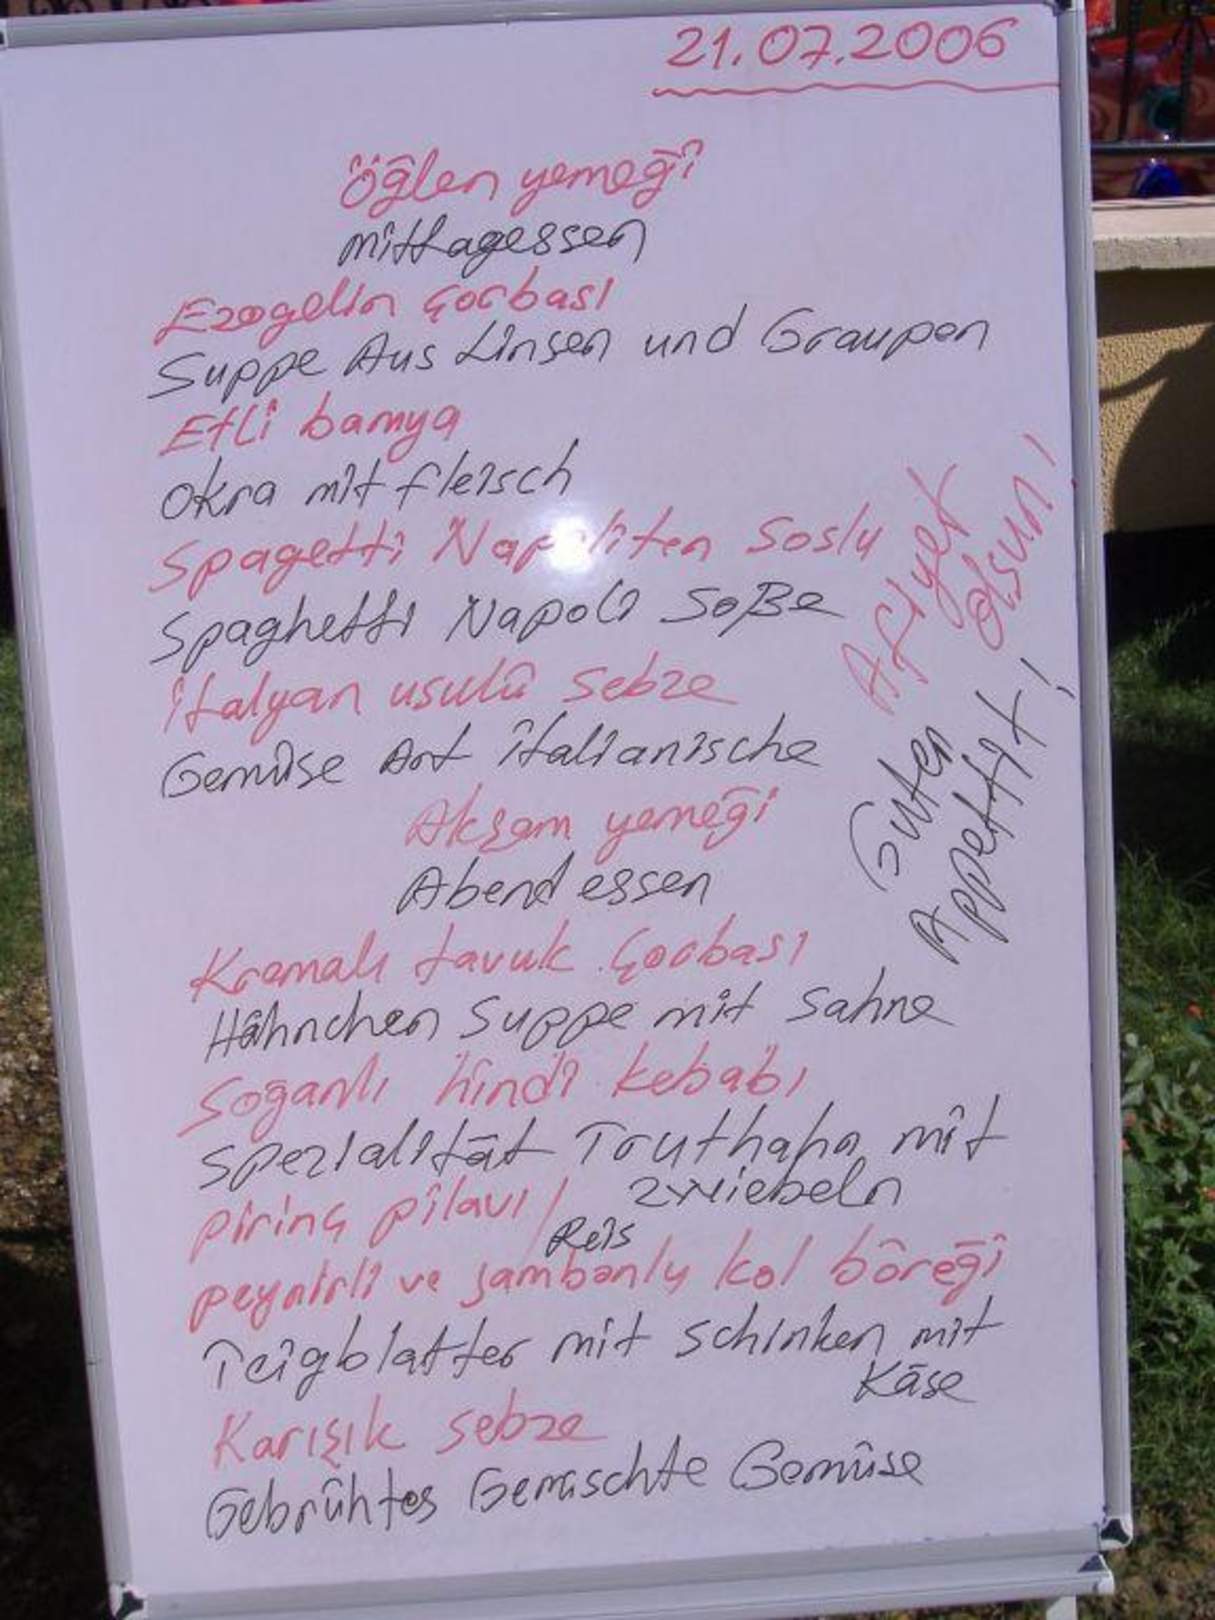 21.07.2006
Öğlen yemeği
mittagessen
Ezogelin Çorbası
Suppe Aus Linsen und Graupen
Etli bamya
Okra mit fleisch
Spagetti Napoliten Soslu
Spaghetti Napoli Soße
italyan usulü sebze
Gemüse Art italianische
Akşam yemeği
Abend essen
Kremalı tavuk Çorbası
Hähnchen Suppe mit Sahne
Soğanlı hindi kebabı
Spezialität Truthahn mit
zwiebeln
pirinç pilavı /
Reis
peynirli ve jambonlu kol böreği
Teigblatter mit schinken mit
Käse
Karışık sebze
Gebrühtes Gemischte Gemüse
Afiyet
olsun!
Guten
Appettit!